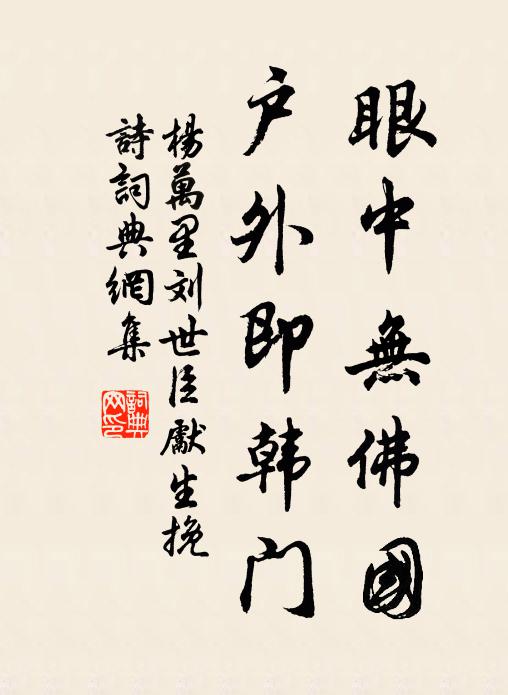 眼中無佛國
户外即韩门
楊萬里刘世臣獻生挽
詩詞典網集
詞典網印